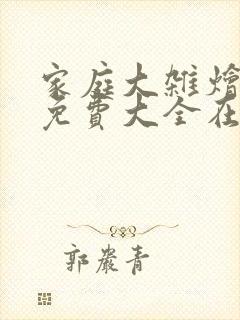 家庭大雜燴
免費大全在
郭嚴青